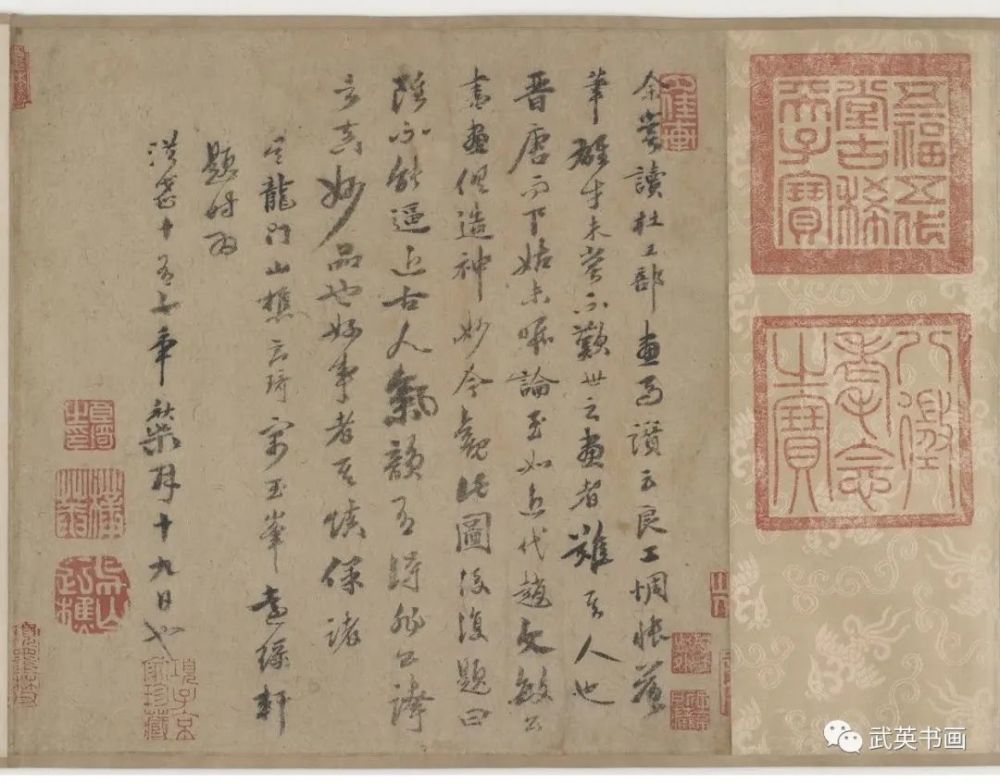 五福五代堂古稀天子寶
八徵耄念之寶
余嘗讀杜工部畫馬讚云良工惆悵落
筆雄才未嘗不歎世之畫者難其人也
晉唐而下姑未暇論至如近代趙文敏公
書畫俱造神妙今觀此圖後復題曰
雖不能逼近古人氣韻有時 公諱
言真妙品也好事者其慎保諸
龍門山樵 琦寓玉峯 軒
題時
洪武十有五年秋柒月十九日也
項子京家珍藏
武英书画